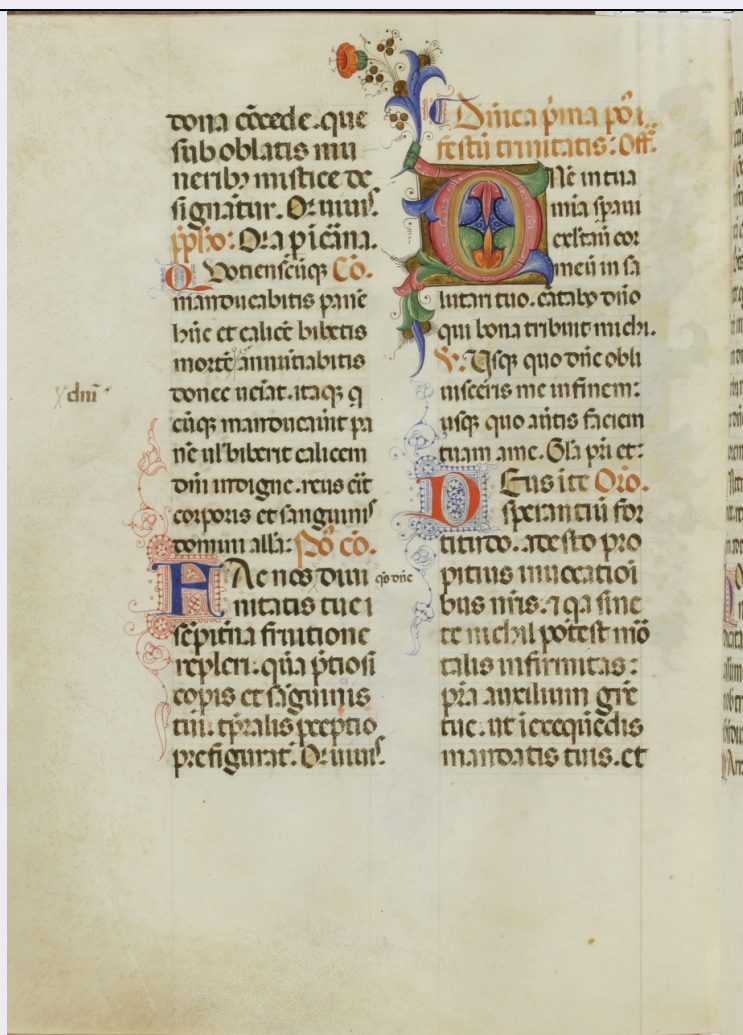 dona cōcede. que
sub oblatis mu
neribꝫ mistice de
signātur. Qui uiuiſ.
p̄p̄lo: Ora p icāna.
Quotienscūqꝫ Cō.
manducabitis panē
hūc et calicē bibetis
mortē annūtiabitis
dn̄i
donec ueīat. itaqꝫ q
cūqꝫ manducauīt pa
nē ul' biberit calicem
dn̄i indigne. reus eīt
corporis et sanguinis
domini all̄a: Pō cō.
HAc nos dnn̄ q̄s dn̄e
nitatis tue i
sēpitīna fruitione
repleri. quā p̄tiosi
corpis et sāguinis
tui. tp̄ralis pceptio
prefigurat. Qui uiuiſ.
Dn̄ica p̄ma pō i.
festū trinitatis: Off̄.
DNē in tua
mīa spaui
exltauī cor
meū in sa
lutari tuo. cātabo dn̄o
qui bona tribuit michi.
V. Usqꝫ quo dn̄e obli
uisceris me in finem:
usqꝫ quo aūtis faciem
tuam a me. Gl̄a p̄ri et:
DEus in te Orō.
sperantiū for
titudo. adesto pro
pitius inuocatiōi
bus nr̄is. ⁊ q̄a sine
te nichil potest mō
talis infirmitas:
pr̄a auxilium gr̄e
tue. ut ī exequēdis
mandatis tuis. et